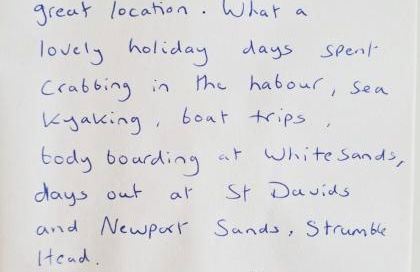 great location. What a
lovely holiday days spent
Crabbing in the habour, sea
Kyaking, boat trips,
body boarding at Whitesands,
days out at St Davids
and Newport Sands, Strumble
Head.